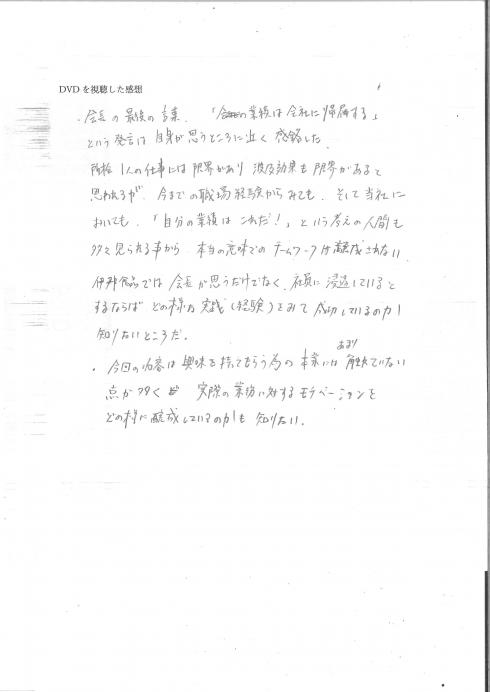 DVDを視聴した感想
・会長の最後の言葉、「の業績は会社に帰属する」
という発言は自身が思うところに近く感銘した。
所詮1人の仕事には限界があり波及効果も限界があると
思われるが、今までの職場経験からみても、そして当社に
おいても、「自分の業績はこれだ！」という考えの人間も
多々見られる事から本当の意味でのチームワークは醸成されない
伊那食品では会長が思うだけでなく、社員に浸透していると
するならばどの様な実践（経験）をみて成功しているのか
知りたいところだ。
・今回の内容は興味を持ってもらう為の本業にはあまり触れていない
点が多く 実際の業務に対するモチベーションを
どの様に醸成しているのかも知りたい。